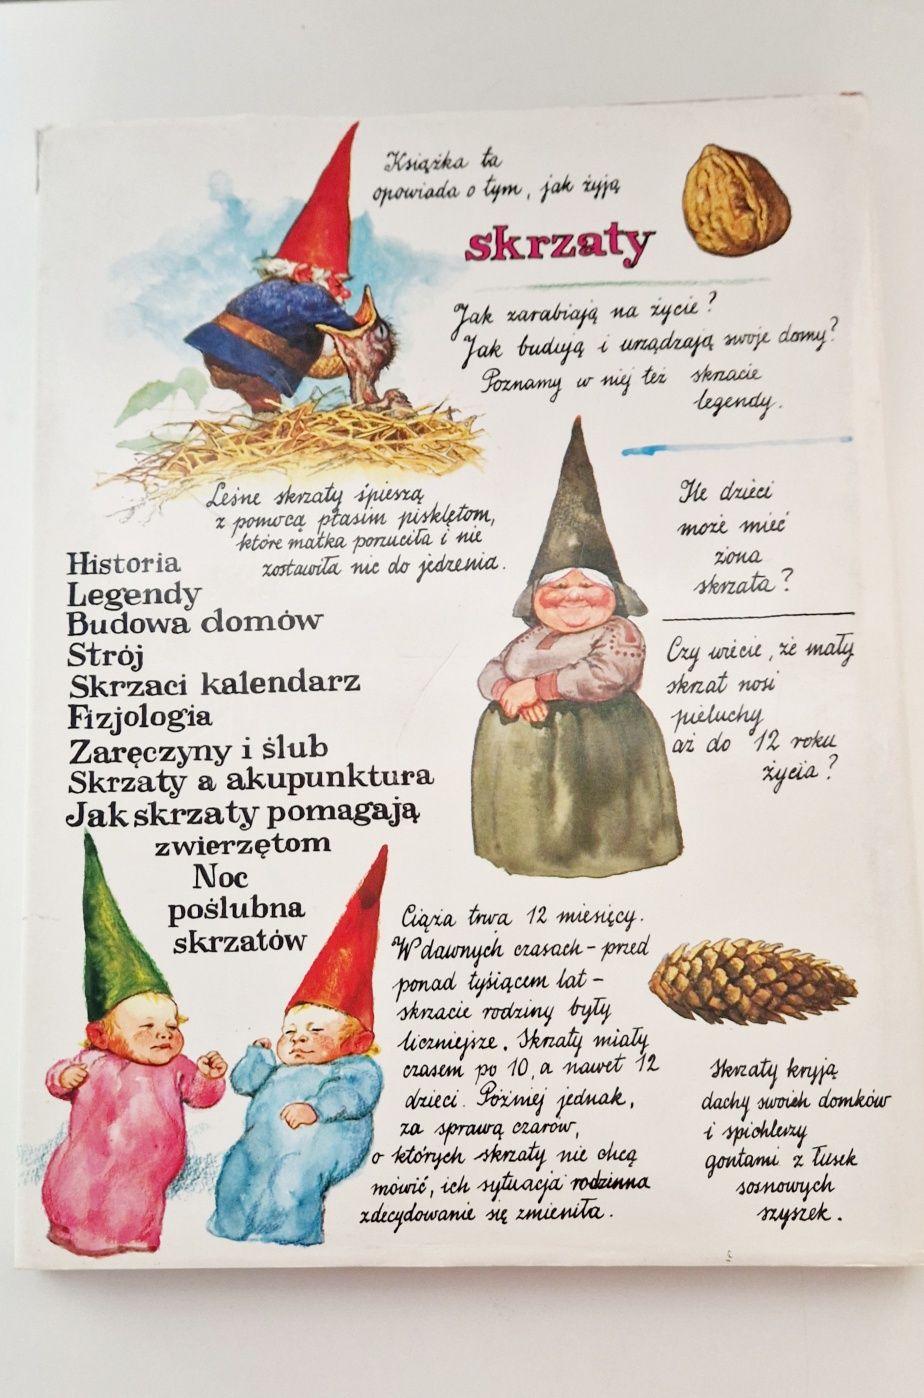 Książka ta
opowiada o tym, jak żyją
skrzaty
Jak zarabiają na życie?
Jak budują i urządzają swoje domy?
Poznamy w niej też skrzacie
legendy.
Leśne skrzaty śpieszą
z pomocą ptasim pisklętom,
które matka porzuciła i nie
zostawiła nic do jedzenia.
Historia
Legendy
Budowa domów
Strój
Skrzaci kalendarz
Fizjologia
Zaręczyny i ślub
Skrzaty a akupunktura
Jak skrzaty pomagają
zwierzętom
Noc
poślubna
skrzatów
Ile dzieci
może mieć
żona
skrzata?
Czy wiecie, że mały
skrzat nosi
pieluchy
aż do 12 roku
życia?
Ciąża trwa 12 miesięcy.
W dawnych czasach – przed
ponad tysiącem lat –
skrzacie rodziny były
liczniejsze. Skrzaty miały
czasem po 10, a nawet 12
dzieci. Później jednak,
za sprawą czarów,
o których skrzaty nie chcą
mówić, ich sytuacja rodzinna
zdecydowanie się zmieniła.
Skrzaty kryją
dachy swoich domków
i spichlerzy
gontami z łusek
sosnowych
szyszek.